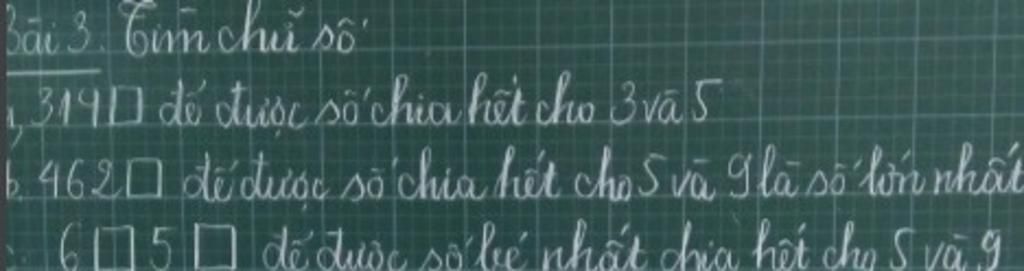 Bài 3. Tìm chữ số
a, 319□ để được số chia hết cho 3 và 5
b. 462□ để được số chia hết cho 5 và 9 là số lớn nhất
c. 6□5□ để được số bé nhất chia hết cho 5 và 9